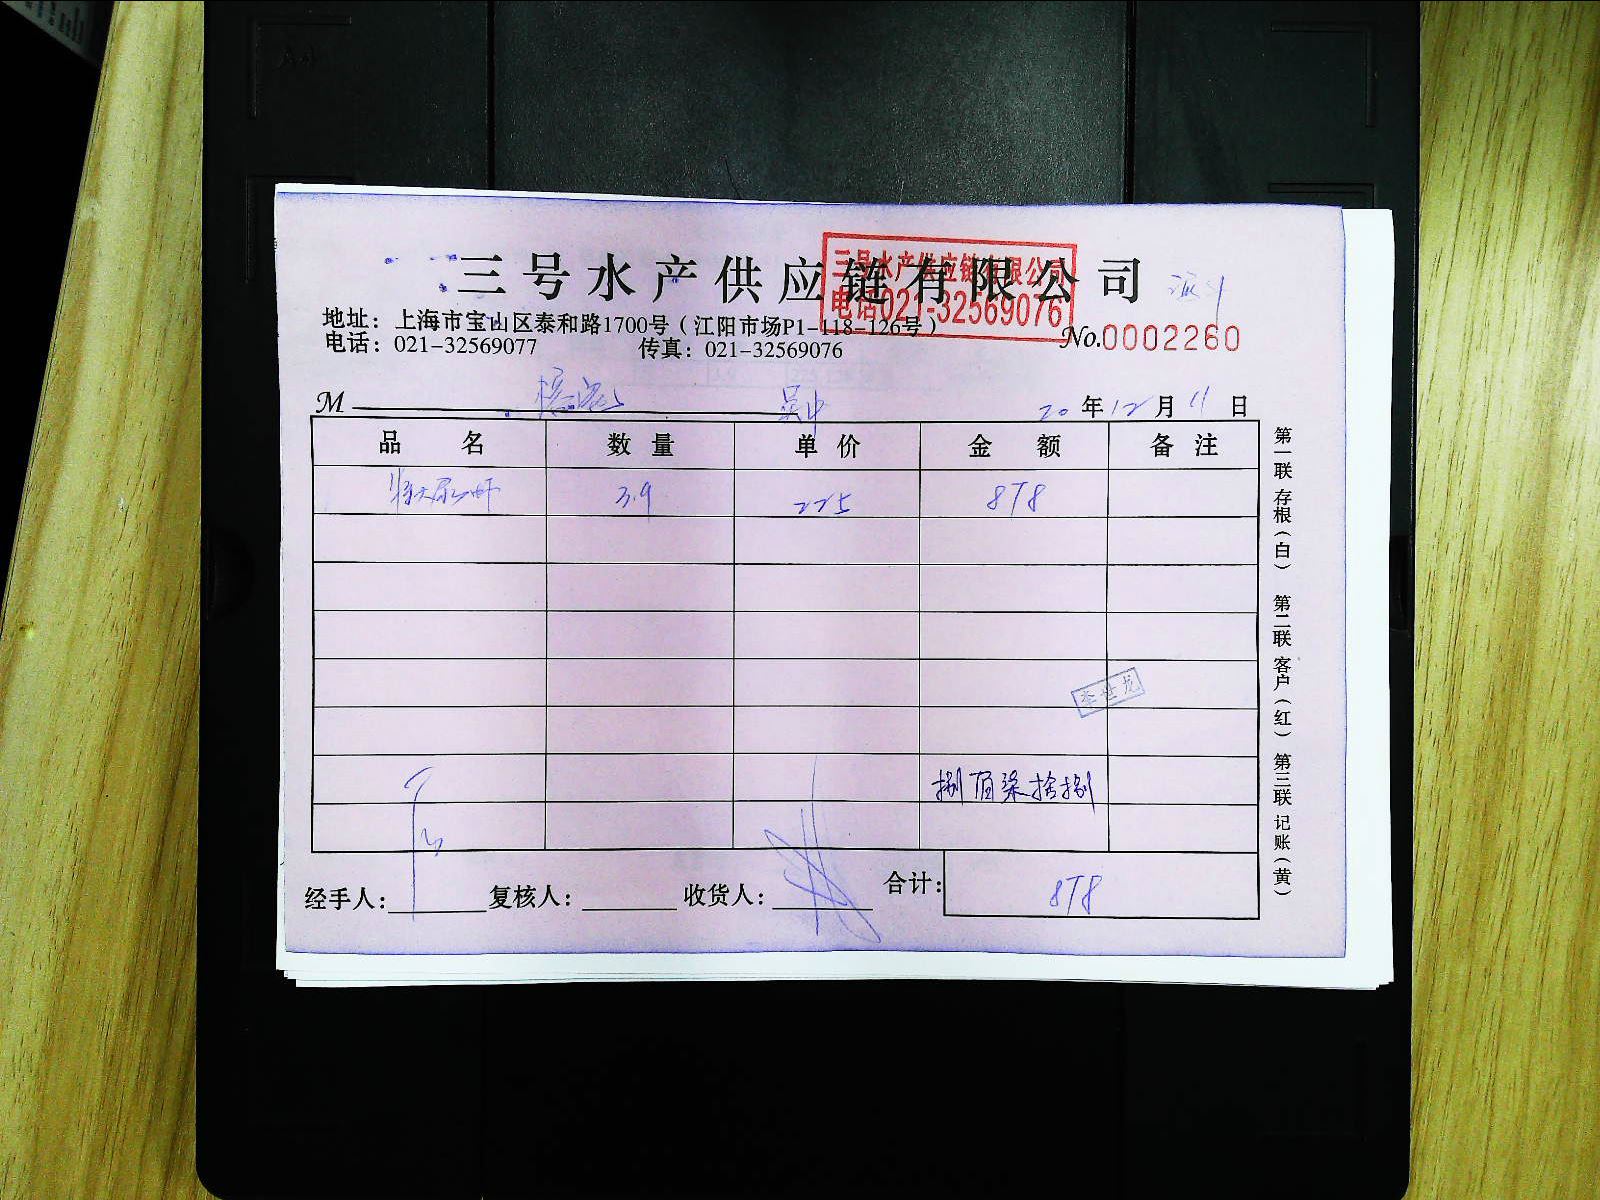 三号水产供应链有限公司
三号水产供应链有限公司
电话021-32569076
地址：上海市宝山区泰和路1700号（江阳市场P1-118-126号）
电话：021-32569077 传真：021-32569076
No.0002260
M 吴中 20年12月11日
品名 数量 单价 金额 备注
特大尿山虾 3.9 225 878
李世龙
捌佰柒拾捌
经手人： 复核人： 收货人： 合计： 878
第一联 存根（白） 第二联 客户（红） 第三联 记账（黄）